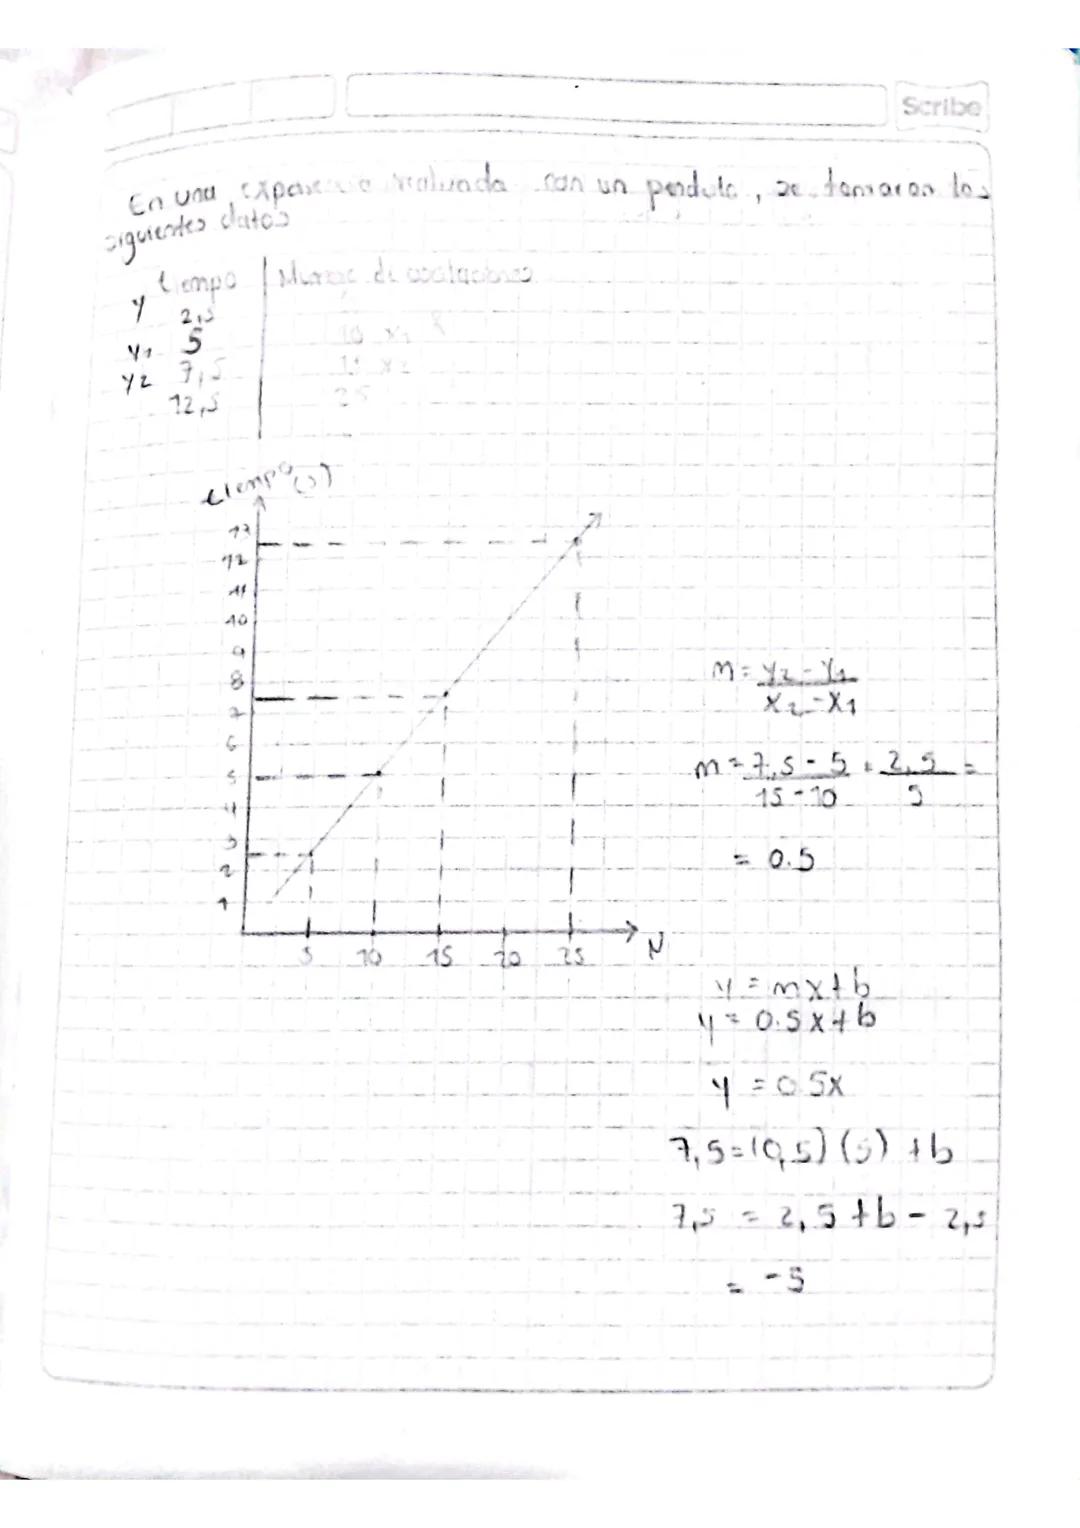 Scribe
En una experiencia realizada con un pendulo, se tomaron los
siguientes datos
tiempo
y 2,5
y1 5 10 x1
y2 7,5 x2
12,5 25
tiempo (s)
13
12
11
10
9
8
7
6
5
4
3
2
1
5 10 15 20 25 N
m = y2 - y1
x2 - x1
m = 7,5 - 5 = 2,5 =
15 - 10 5
= 0.5
y = mx + b
y = 0.5x + b
y = 0.5x
7,5 = (0,5) (5) + b
7,5 = 2,5 + b - 2,5
= -5